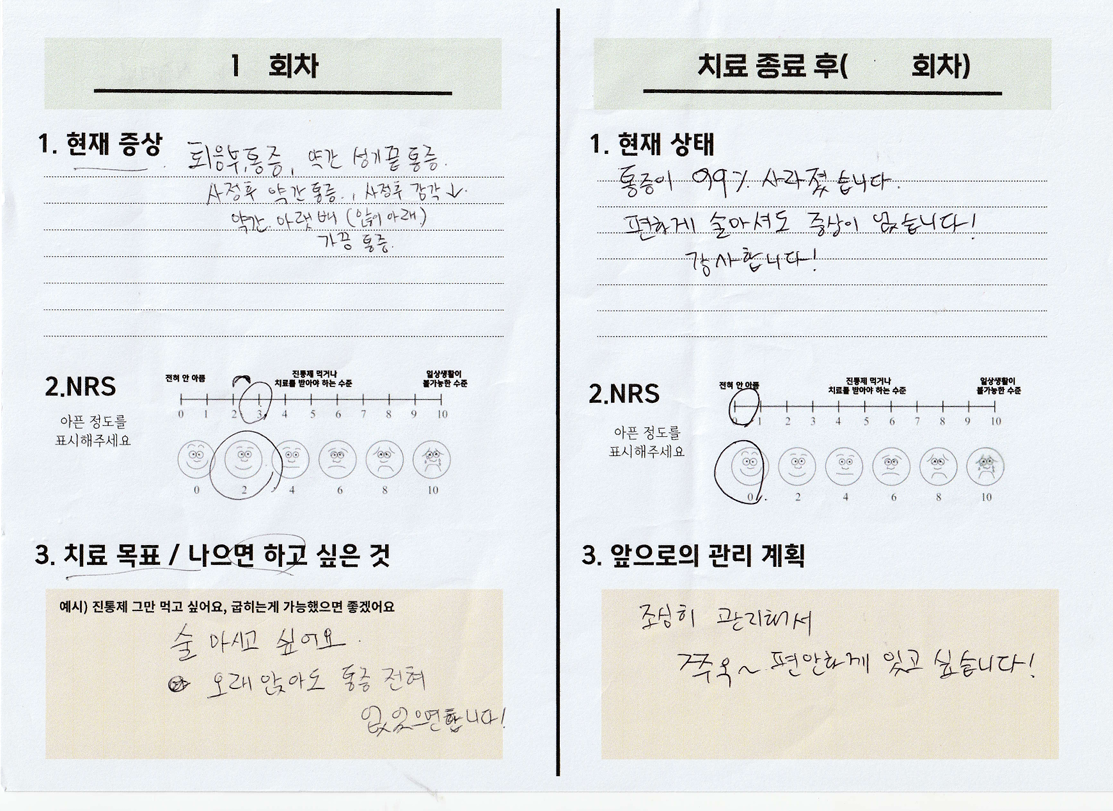 1 회차
1. 현재 증상
회음부,통증, 약간 성기끝 통증.
사정후 약간 통증., 사정후 감각↓.
약간. 아랫배 (앉이 아래)
가끔 통증.
2.NRS
아픈 정도를
표시해주세요
전혀 안 아픔
진통제 먹거나
치료를 받아야 하는 수준
일상생활이
불가능한 수준
0 1 2 3 4 5 6 7 8 9 10
0 2 4 6 8 10
3. 치료 목표 / 나으면 하고 싶은 것
예시) 진통제 그만 먹고 싶어요, 굽히는게 가능했으면 좋겠어요
술 마시고 싶어요.
오래 앉아도 통증 전혀
없있으면합니다!
치료 종료 후( 회차)
1. 현재 상태
통증이 99% 사라졌습니다.
편하게 술마셔도 증상이 없습니다!
감사합니다!
2.NRS
아픈 정도를
표시해주세요
전혀 안 아픔
진통제 먹거나
치료를 받아야 하는 수준
일상생활이
불가능한 수준
0 1 2 3 4 5 6 7 8 9 10
0 2 4 6 8 10
3. 앞으로의 관리 계획
조심히 관리해서
쭈욱~ 편안하게 있고 싶습니다!